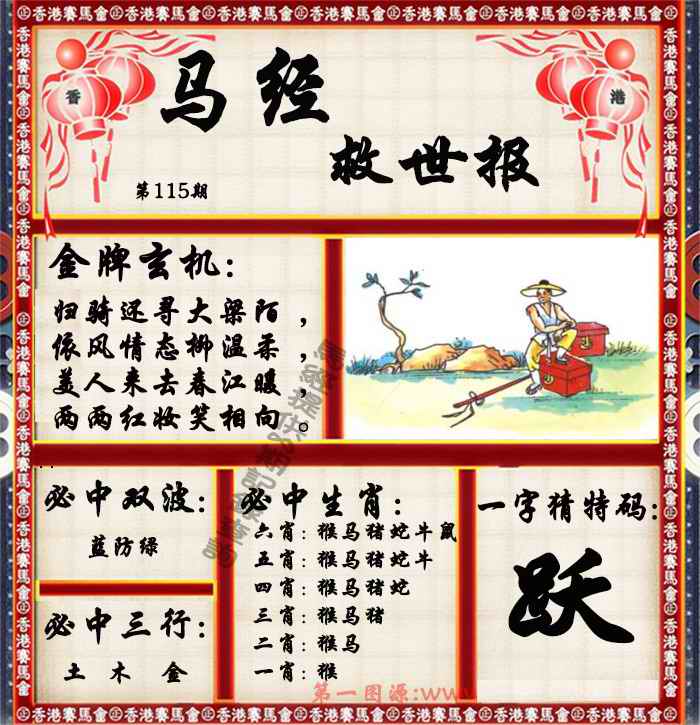 香港賽馬會
香
港
马经
救世报
第115期
金牌玄机:
归骑还寻大梁陌，
依风情态柳温柔，
美人来去春江暖，
两两红妆笑相向。
必中双波:
蓝防绿
必中三行:
土 木 金
必中生肖:
六肖:猴马猪蛇牛鼠
五肖:猴马猪蛇牛
四肖:猴马猪蛇
三肖:猴马猪
二肖:猴马
一肖:猴
一字猜特码:
跃
第一图源:www